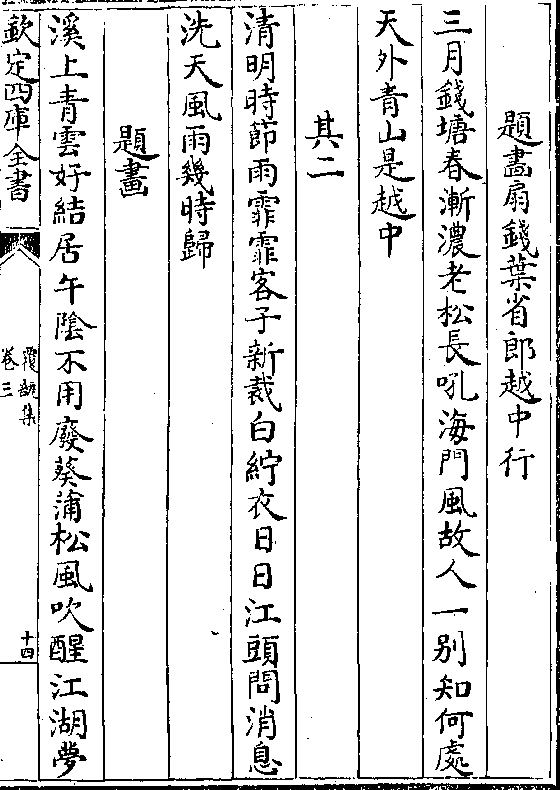 題畫扇錢葉省郎越中行
三月錢塘春漸濃老松長吼海門風故人一別知何處
天外青山是越中
其二
清明時節雨霏霏客子新裁白紵衣日日江頭問消息
洗天風雨幾時歸
題畫
溪上青雲好結居午陰不用廢葵蒲松風吹醒江湖夢
欽定四庫全書
覆瓿集
卷三
十四